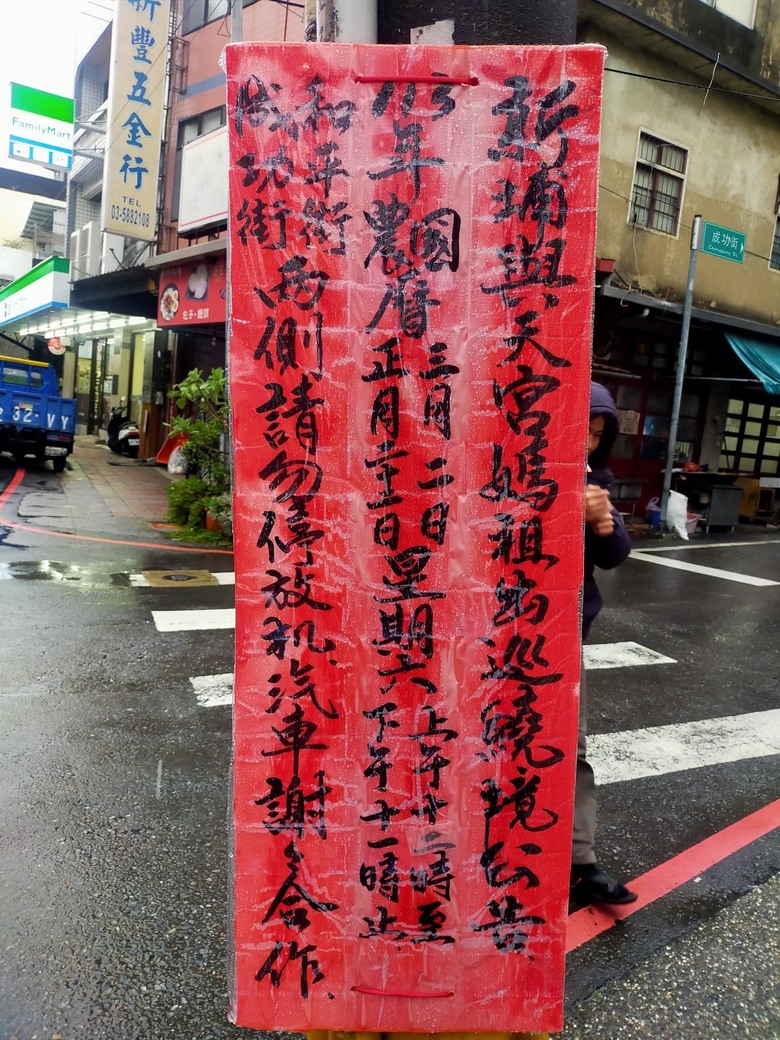 新埔與天宮媽祖出巡繞境公告
113年國農曆
三月二日
正月二十二日
星期六
上午十二時至
下午十一時止
和平街
成功街
兩側請勿停放机汽車謝々合作
FamilyMart
新豐五金行
TEL
03-5882108
包子‧饅頭
成功街
Chenggong St.